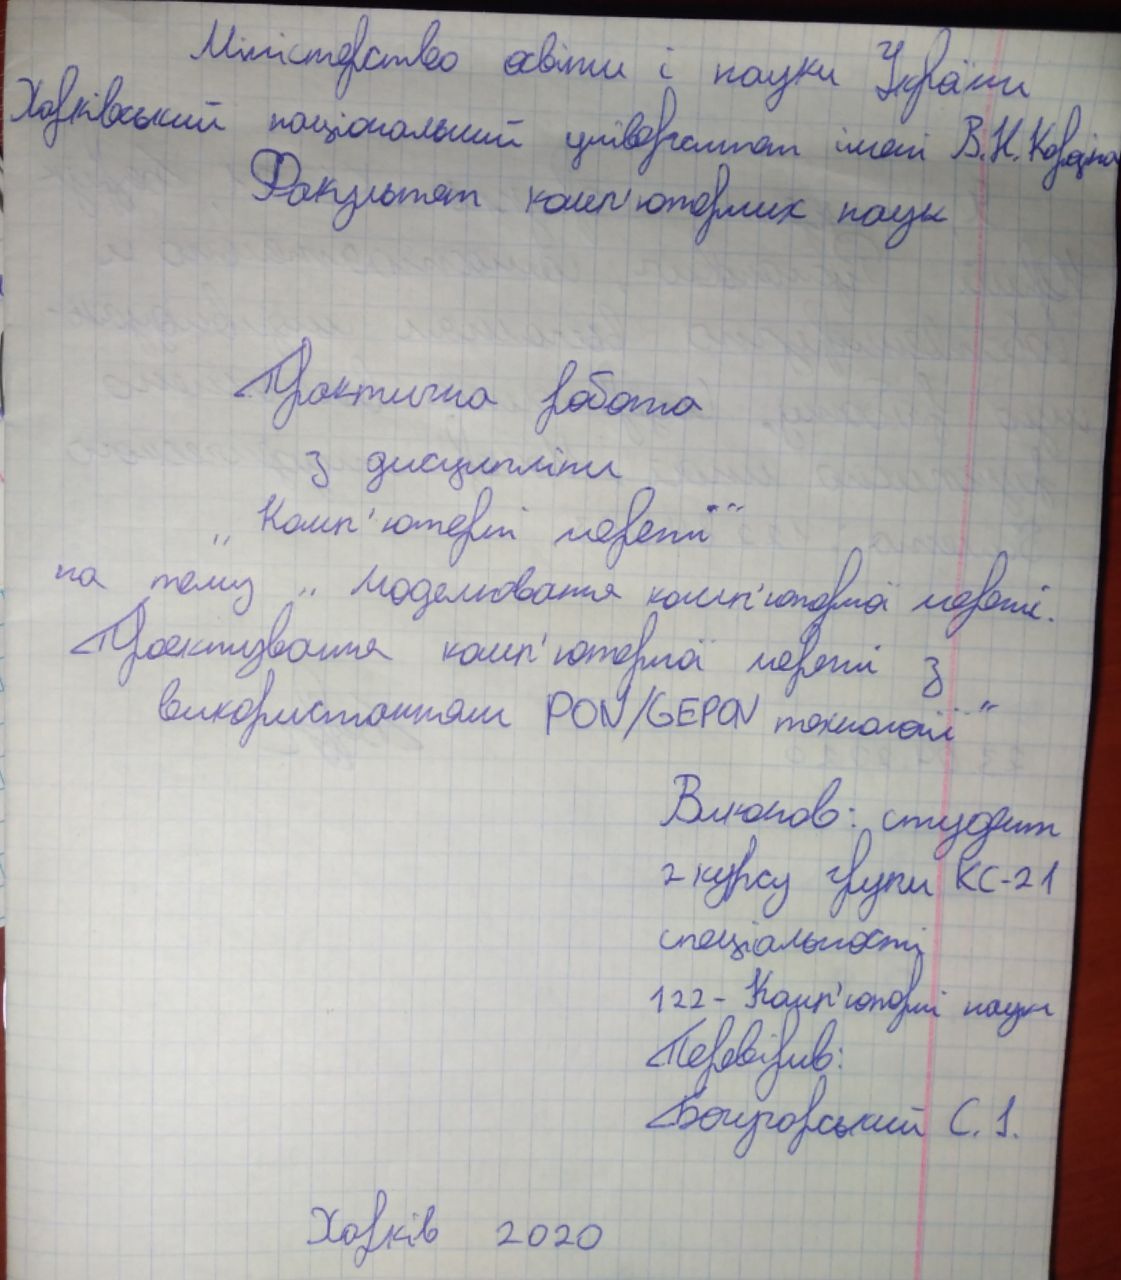 Міністерство освіти і науки України
Харківський національний університет імені В.Н. Каразіна
Факультет комп'ютерних наук
Практична робота
з дисципліни
„Комп'ютерні мережі"
на тему „Моделювання комп'ютерної мережі.
Проектування комп'ютерної мережі з
використанням PON/GEPON технології"
Виконав: студент
2 курсу групи КС-21
спеціальності
122 - Комп'ютерні науки
Перевірив:
С. І.
Харків 2020